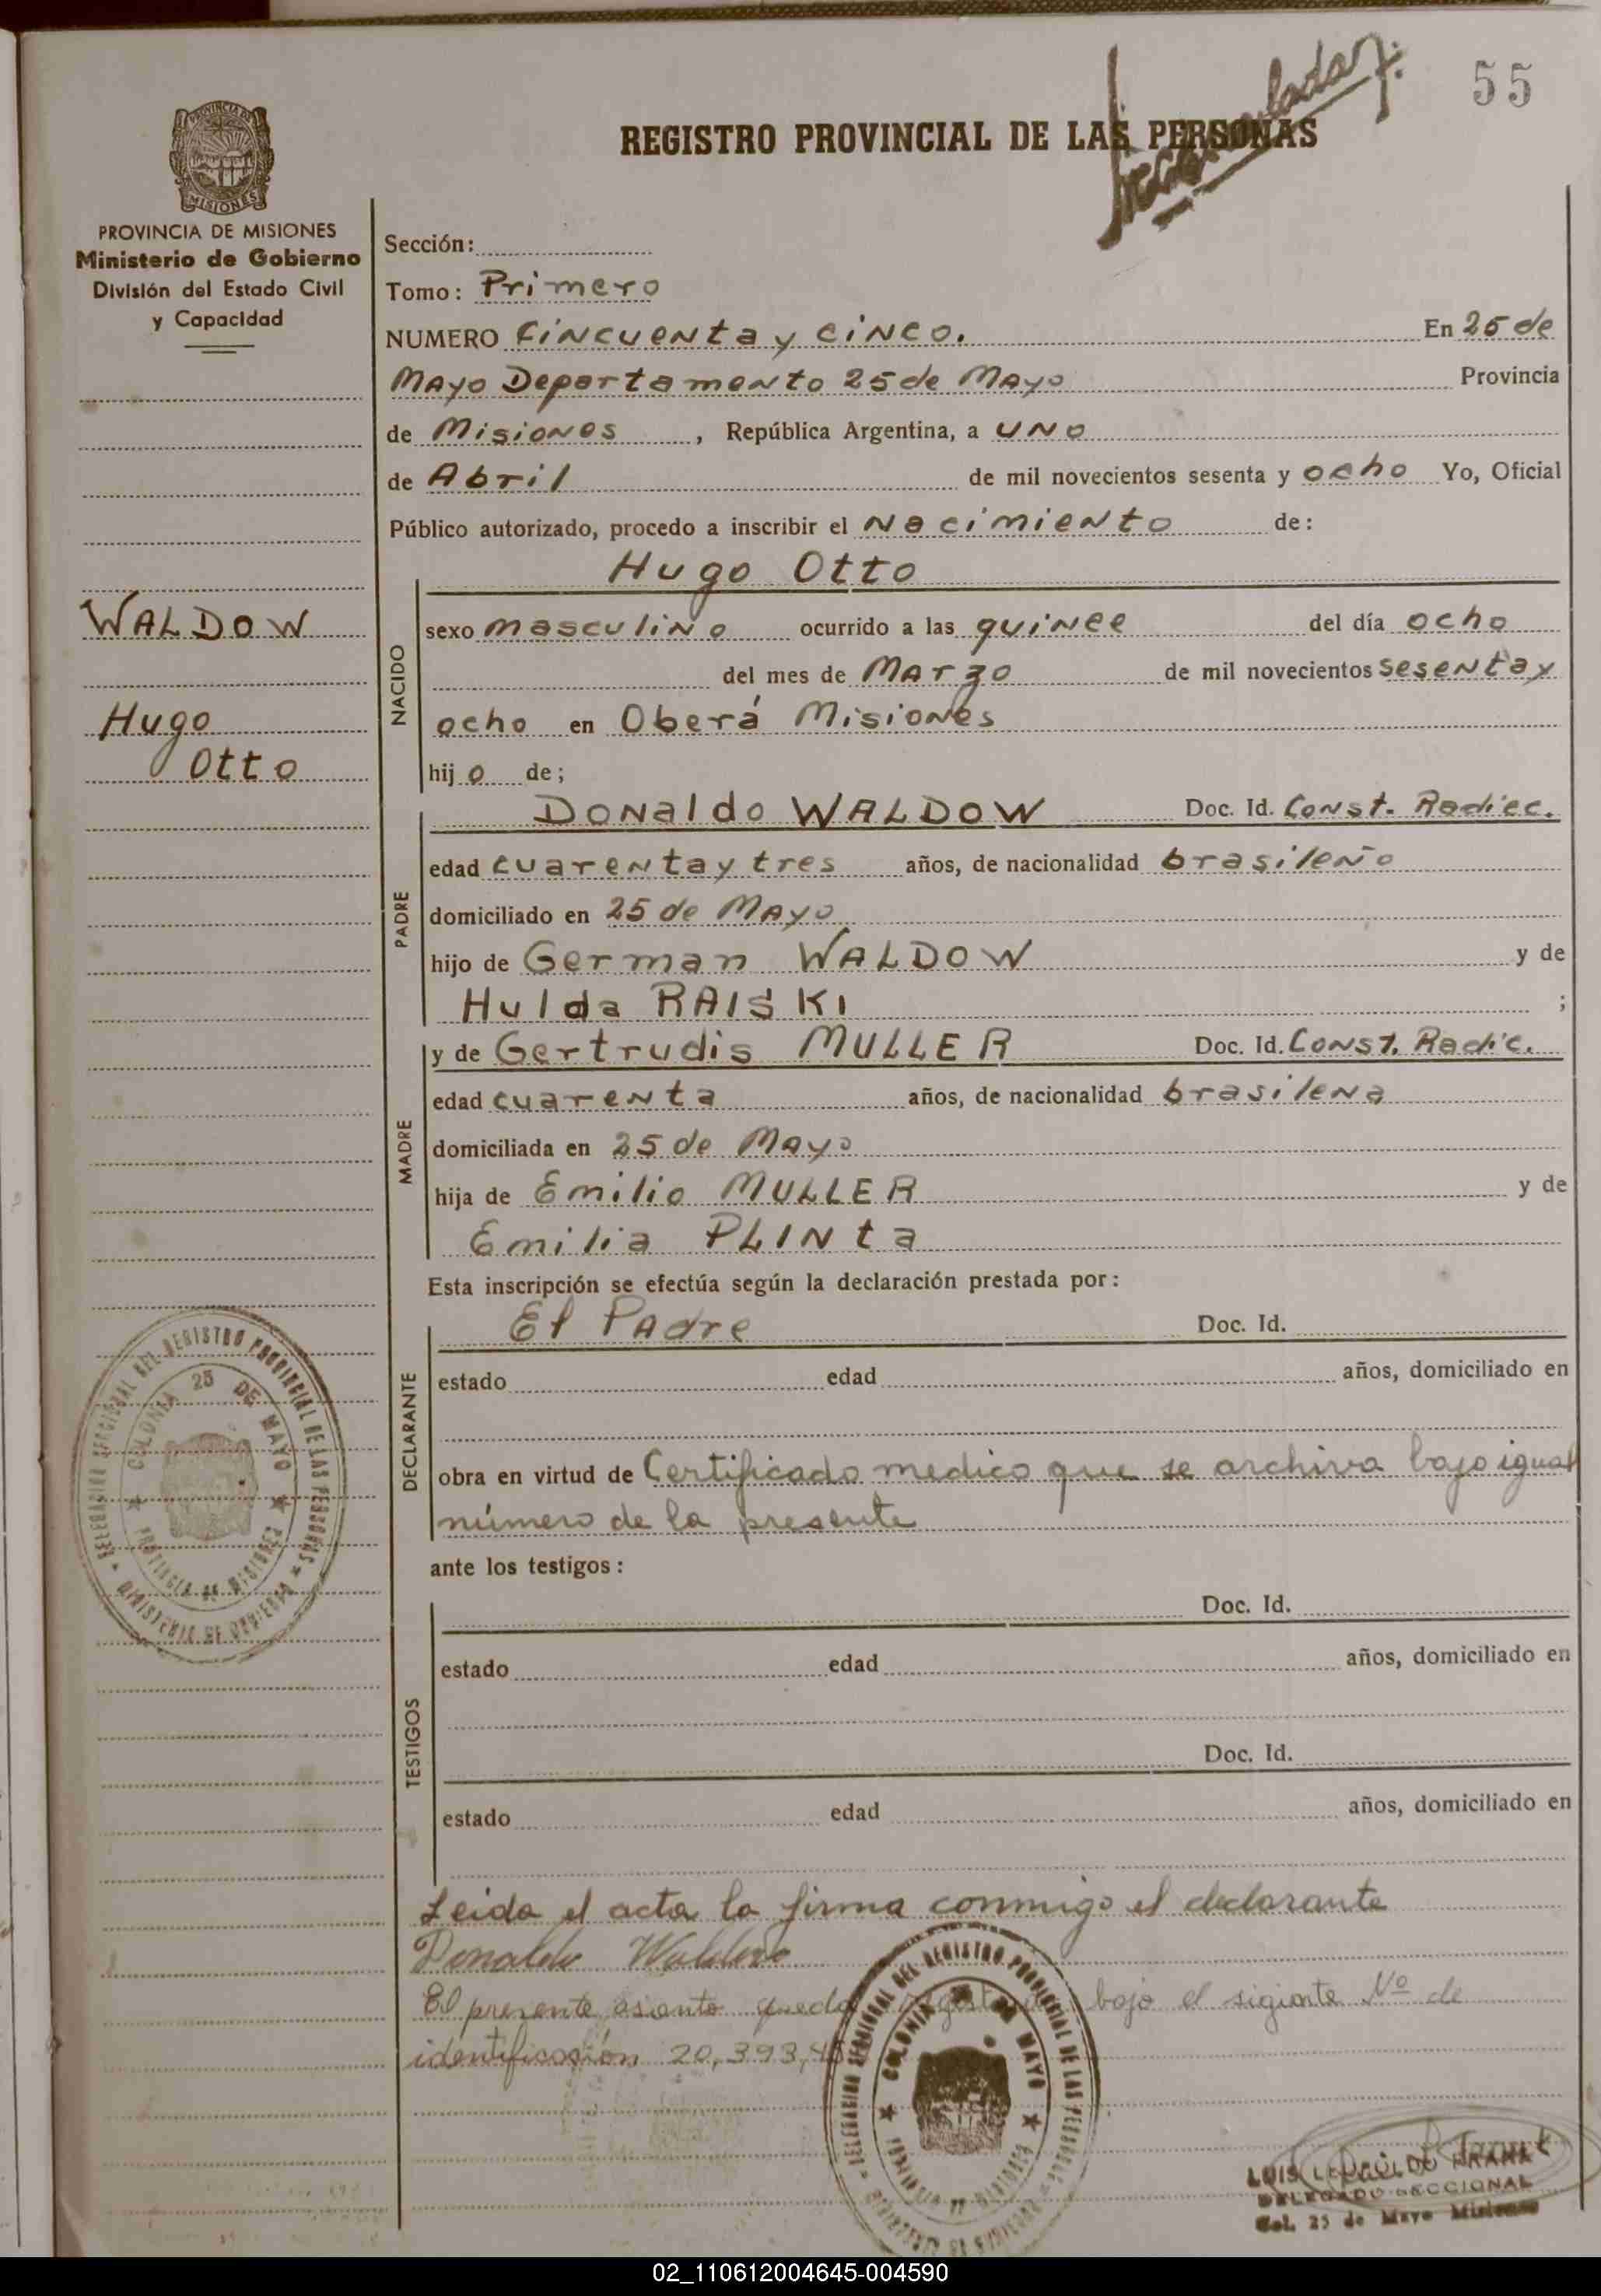 55
REGISTRO PROVINCIAL DE LAS PERSONAS
PROVINCIA DE MISIONES
Ministerio de Gobierno
División del Estado Civil
y Capacidad
Sección:
Tomo: Primero
NUMERO Cincuenta y cinco. En 25 de
Mayo Departamento 25 de Mayo Provincia
de Misiones, República Argentina, a uno
de Abril de mil novecientos sesenta y ocho Yo, Oficial
Público autorizado, procedo a inscribir el Nacimiento de:
Hugo Otto
WALDOW
Hugo
Otto
NACIDO
sexo masculino ocurrido a las quince del día ocho
del mes de Marzo de mil novecientos sesenta y
ocho en Oberá Misiones
hijo de;
PADRE
Donaldo WALDOW Doc. Id. Const. Radicc.
edad cuarenta y tres años, de nacionalidad brasileño
domiciliado en 25 de Mayo
hijo de German WALDOW y de
Hulda RAISKI ;
MADRE
y de Gertrudis MULLER Doc. Id. Const. Radic.
edad cuarenta años, de nacionalidad brasilena
domiciliada en 25 de Mayo
hija de Emilio MULLER y de
Emilia PLINta
Esta inscripción se efectúa según la declaración prestada por:
DECLARANTE
El Padre Doc. Id.
estado edad años, domiciliado en
obra en virtud de Certificado medico que se archiva bajo igual
número de la presente
DELEGACION SECCIONAL DEL REGISTRO PROVINCIAL DE LAS PERSONAS
MINISTERIO DE GOBIERNO
COLONIA 25 DE MAYO
PROVINCIA DE MISIONES
ante los testigos:
TESTIGOS
Doc. Id.
estado edad años, domiciliado en
Doc. Id.
estado edad años, domiciliado en
Leida el acta la firma conmigo el declarante
Donaldo Waldow
El presente asento queda bajo el sigiente Nº de
identificación 20,393,
DELEGACION SECCIONAL DEL REGISTRO PROVINCIAL DE LAS PERSONAS
COLONIA 25 DE MAYO
PROVINCIA DE MISIONES
LUIS LEOPOLDO
DELEGADO SECCIONAL
Col. 25 de Mayo Misiones
02_110612004645-004590